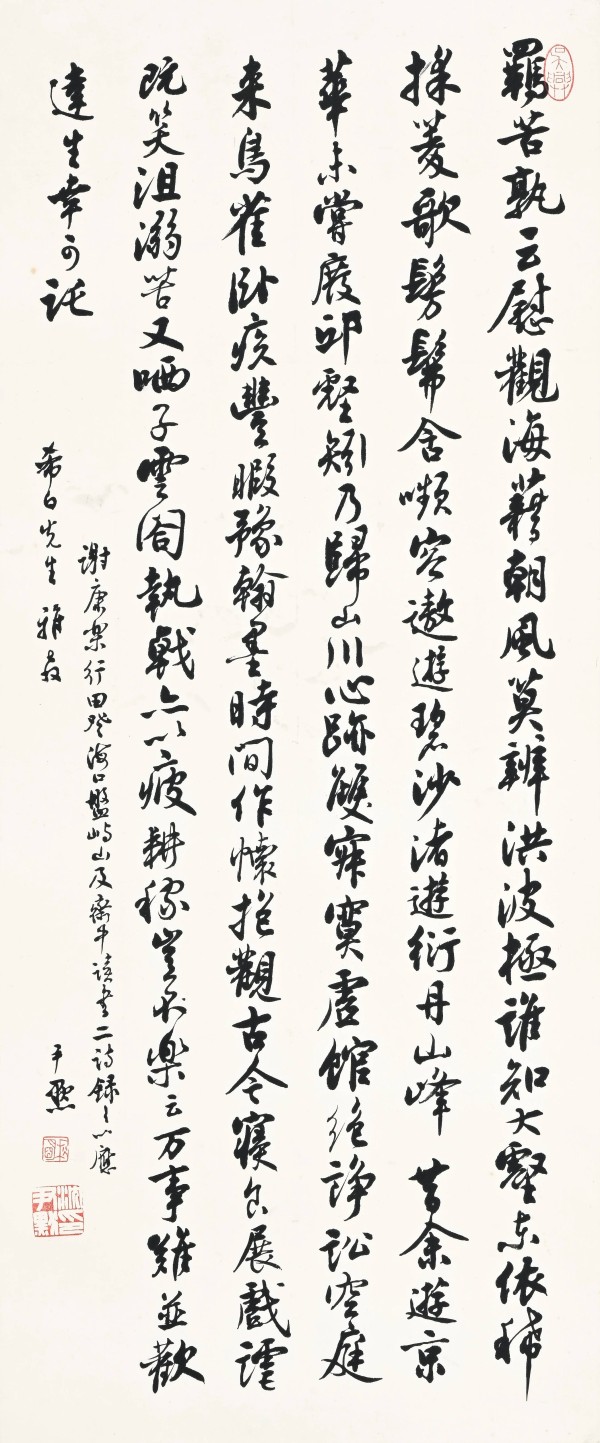 羈苦孰云慰觀海藉朝風莫辨洪波極誰知大壑東依稀
採菱歌髣髴含嚬容遨遊碧沙渚遊衍丹山峰 昔余遊京
華未嘗廢邱壑矧乃歸山川心跡雙寂寞虛館絕諍訟空庭
来鳥雀臥疾豐暇豫翰墨時間作懷抱觀古今寢食展戲謔
既笑沮溺苦又哂子雲閣執戟亦以疲耕稼豈不樂云万事難並歡
達生幸可託
謝康樂行田登海口盤嶼山及齋中讀書二詩錄之以應
希白先生雅教
尹默
吳興
沈尹默